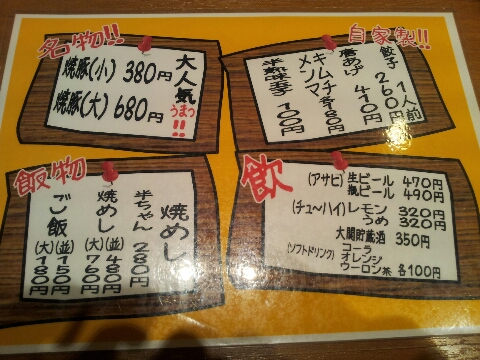 名物!!
焼豚(小) 380円
焼豚(大) 680円
大人気
うまっ!!
自家製!!
餃子 1人前 260円
唐あげ 410円
キムチ
メンマ 各180円
半熟味玉子 100円
飯物
焼めし
半ちゃん 280円
焼めし (並) 480円
(大) 760円
ご飯 (並) 150円
(大) 180円
飲
(アサヒ) 生ビール 470円
瓶ビール 490円
(チューハイ) レモン 320円
うめ 320円
大関貯蔵酒 350円
(ソフトドリンク) コーラ
オレンジ
ウーロン茶 各100円